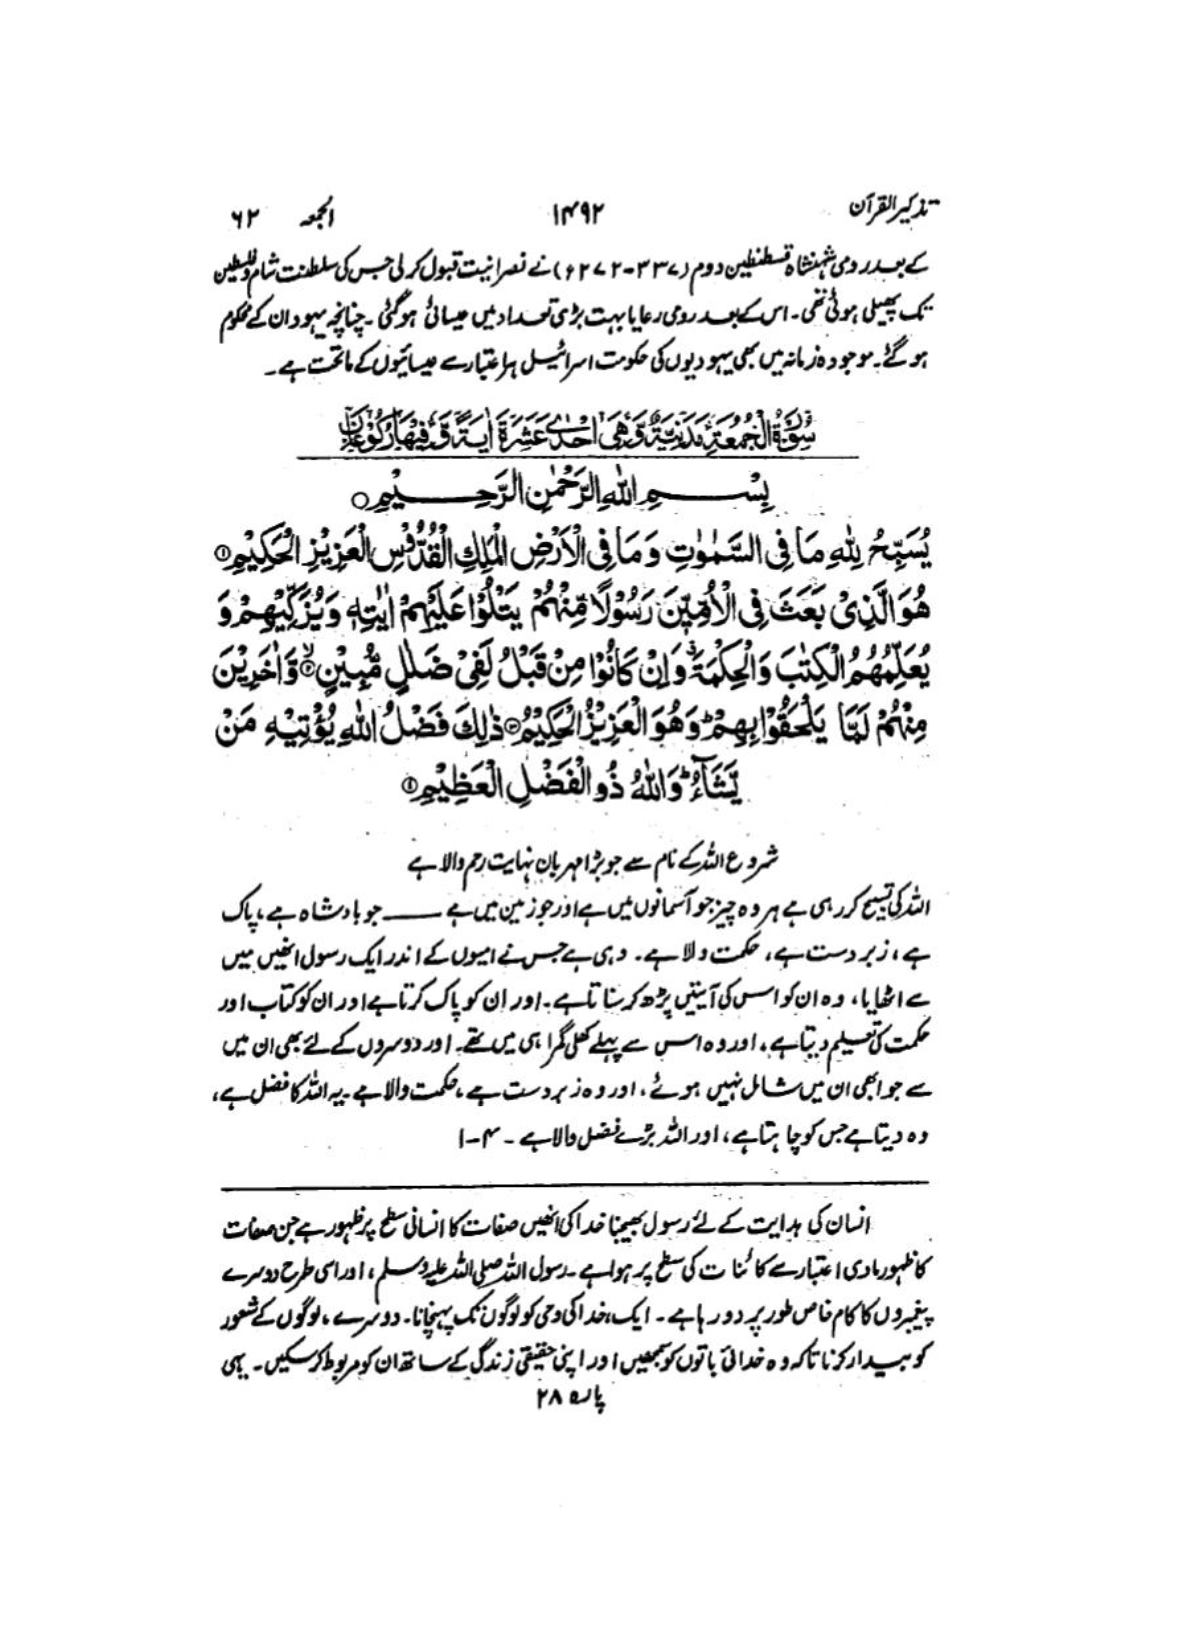 تذکیر القرآن ۱۴۹۲ الجمعہ ۶۲
کے بعد رومی شہنشاہ قسطنطین دوم (۳۳۷-۲۷۲ء) نے نصرانیت قبول کرلی جس کی سلطنت شام و فلسطین
تک پھیلی ہوئی تھی۔ اس کے بعد رومی رعایا بہت بڑی تعداد میں عیسائی ہوگئی۔ چنانچہ یہود ان کے محکوم
ہوگئے۔ موجودہ زمانہ میں بھی یہودیوں کی حکومت اسرائیل ہر اعتبار سے عیسائیوں کے ماتحت ہے۔
سُوْرَةُ الْجُمُعَةِ مَدَنِيَّةٌ وَّهِيَ اِحْدٰى عَشَرَةَ اٰيَةً وَّفِيْهَا رُكُوْعَانِ
بِسْمِ اللّٰهِ الرَّحْمٰنِ الرَّحِيْمِ ○
يُسَبِّحُ لِلّٰهِ مَا فِي السَّمٰوٰتِ وَمَا فِي الْاَرْضِ الْمَلِكِ الْقُدُّوْسِ الْعَزِيْزِ الْحَكِيْمِ ①
هُوَ الَّذِيْ بَعَثَ فِي الْاُمِّيّٖنَ رَسُوْلًا مِّنْهُمْ يَتْلُوْا عَلَيْهِمْ اٰيٰتِهٖ وَيُزَكِّيْهِمْ وَ
يُعَلِّمُهُمُ الْكِتٰبَ وَالْحِكْمَةَ ۗ وَاِنْ كَانُوْا مِنْ قَبْلُ لَفِيْ ضَلٰلٍ مُّبِيْنٍ ② وَّاٰخَرِيْنَ
مِنْهُمْ لَمَّا يَلْحَقُوْا بِهِمْ ؕ وَهُوَ الْعَزِيْزُ الْحَكِيْمُ ③ ذٰلِكَ فَضْلُ اللّٰهِ يُؤْتِيْهِ مَنْ
يَّشَآءُ ؕ وَاللّٰهُ ذُو الْفَضْلِ الْعَظِيْمِ ④
شروع اللہ کے نام سے جو بڑا مہربان نہایت رحم والا ہے
اللہ کی تسبیح کر رہی ہے ہر وہ چیز جو آسمانوں میں ہے اور جو زمین میں ہے ـــــ جو بادشاہ ہے، پاک
ہے، زبردست ہے، حکمت والا ہے۔ وہی ہے جس نے امیوں کے اندر ایک رسول انھیں میں
سے اٹھایا، وہ ان کو اس کی آیتیں پڑھ کر سناتا ہے۔ اور ان کو پاک کرتا ہے اور ان کو کتاب اور
حکمت کی تعلیم دیتا ہے، اور وہ اس سے پہلے کھلی گمراہی میں تھے۔ اور دوسروں کے لئے بھی ان میں
سے جو ابھی ان میں شامل نہیں ہوئے، اور وہ زبردست ہے، حکمت والا ہے۔ یہ اللہ کا فضل ہے،
وہ دیتا ہے جس کو چاہتا ہے، اور اللہ بڑے فضل والا ہے۔ ۴-۱
انسان کی ہدایت کے لئے رسول بھیجنا خدا کی انھیں صفات کا انسانی سطح پر ظہور ہے جن صفات
کا ظہور مادی اعتبار سے کائنات کی سطح پر ہوا ہے۔ رسول اللہ صلی اللہ علیہ وسلم، اور اسی طرح دوسرے
پیغمبروں کا کام خاص طور پر دو رہا ہے۔ ایک، خدا کی وحی کو لوگوں تک پہنچانا۔ دوسرے، لوگوں کے شعور
کو بیدار کرنا تاکہ وہ خدائی باتوں کو سمجھیں اور اپنی حقیقی زندگی کے ساتھ ان کو مربوط کرسکیں۔ یہی
پارہ ۲۸